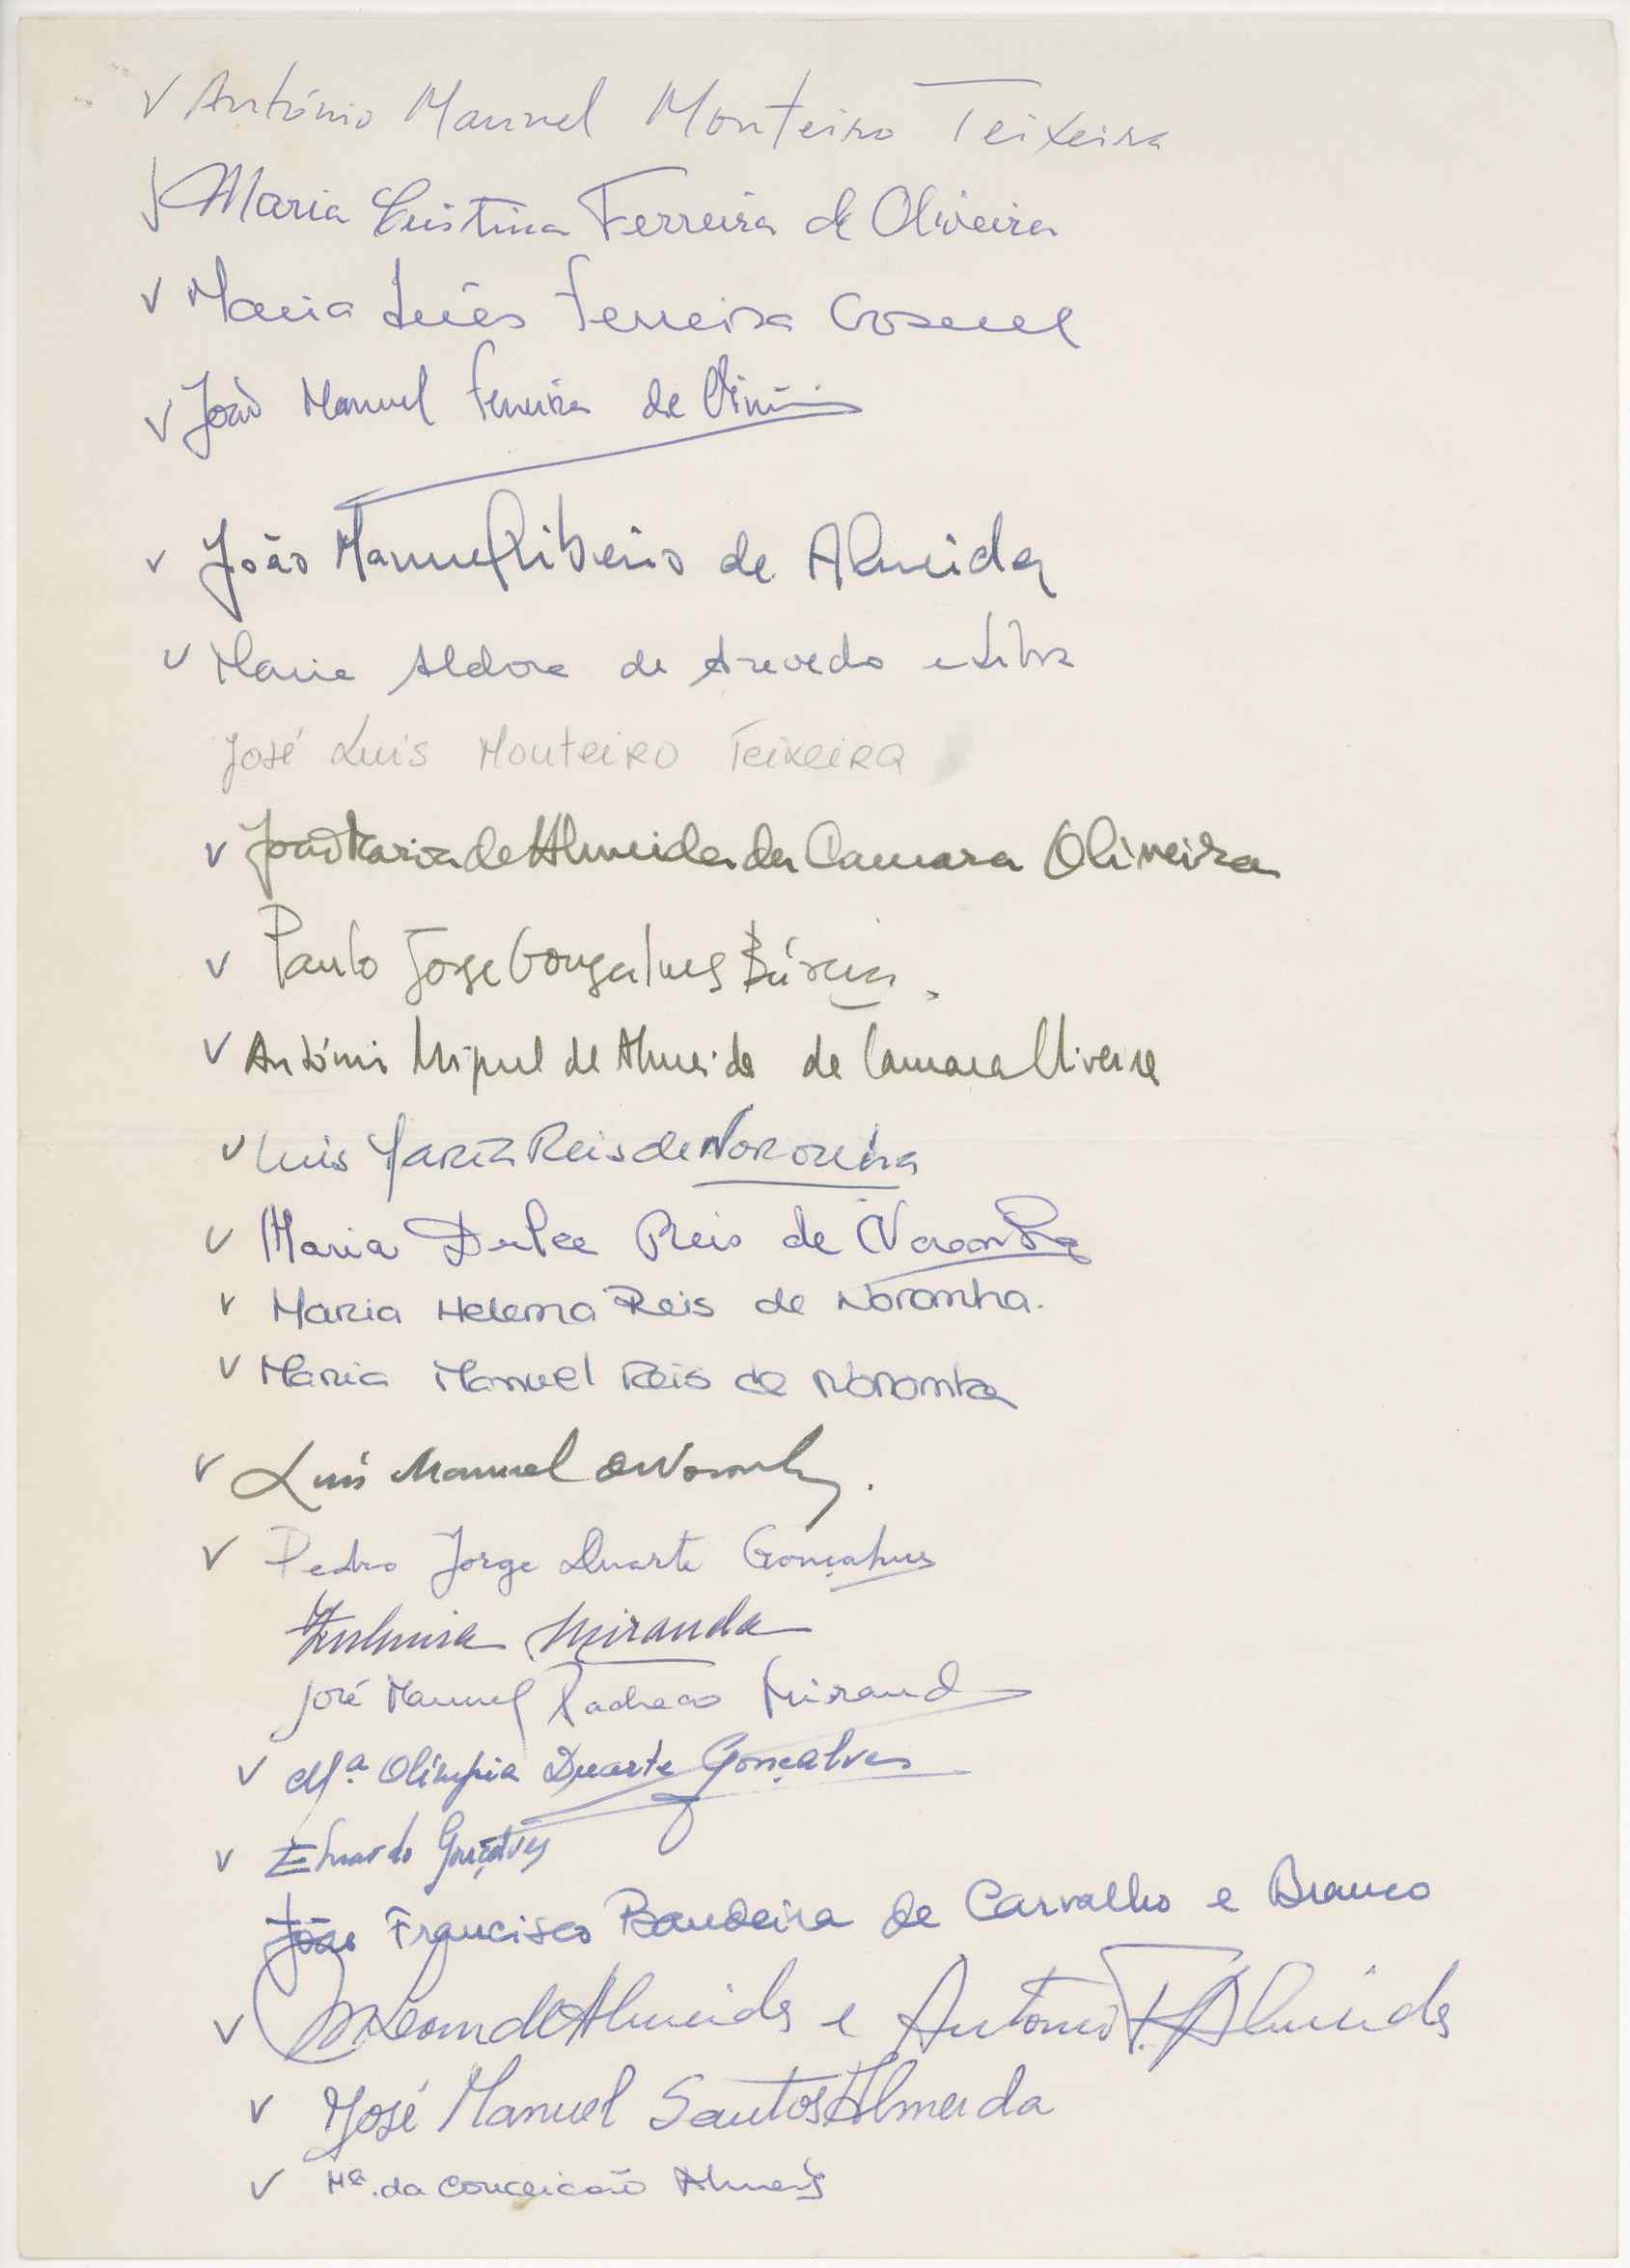 ✓ António Manuel Monteiro Teixeira
✓ Maria Cristina Ferreira de Oliveira
✓ Maria Inês Ferreira
✓ João Manuel Ferreira de
✓ João Manuel Ribeiro de Almeida
✓ Maria Aldora de Azevedo e Silva
José Luis Monteiro Teixeira
✓ João Maria de Almeida da Camara Oliveira
✓ Paulo Jorge Gonçalves
✓ António Miguel de Almeida da Camara Oliveira
✓ Luis Maria Reis de Noronha
✓ Maria Dulce Reis de Noronha
✓ Maria Helena Reis de Noronha.
✓ Maria Manuel Reis de Noronha
✓ Luis Manuel de Noronha.
✓ Pedro Jorge Duarte Gonçalves
Zulmira Miranda
José Manuel Pacheco Miranda
✓ Mª. Olímpia Duarte Gonçalves
✓ Eduardo Gonçalves
João Francisco Bandeira de Carvalho e Branco
✓ de Almeida e Antonio F. Almeida
✓ José Manuel Santos Almeida
✓ Mª. da Conceicão Almeida